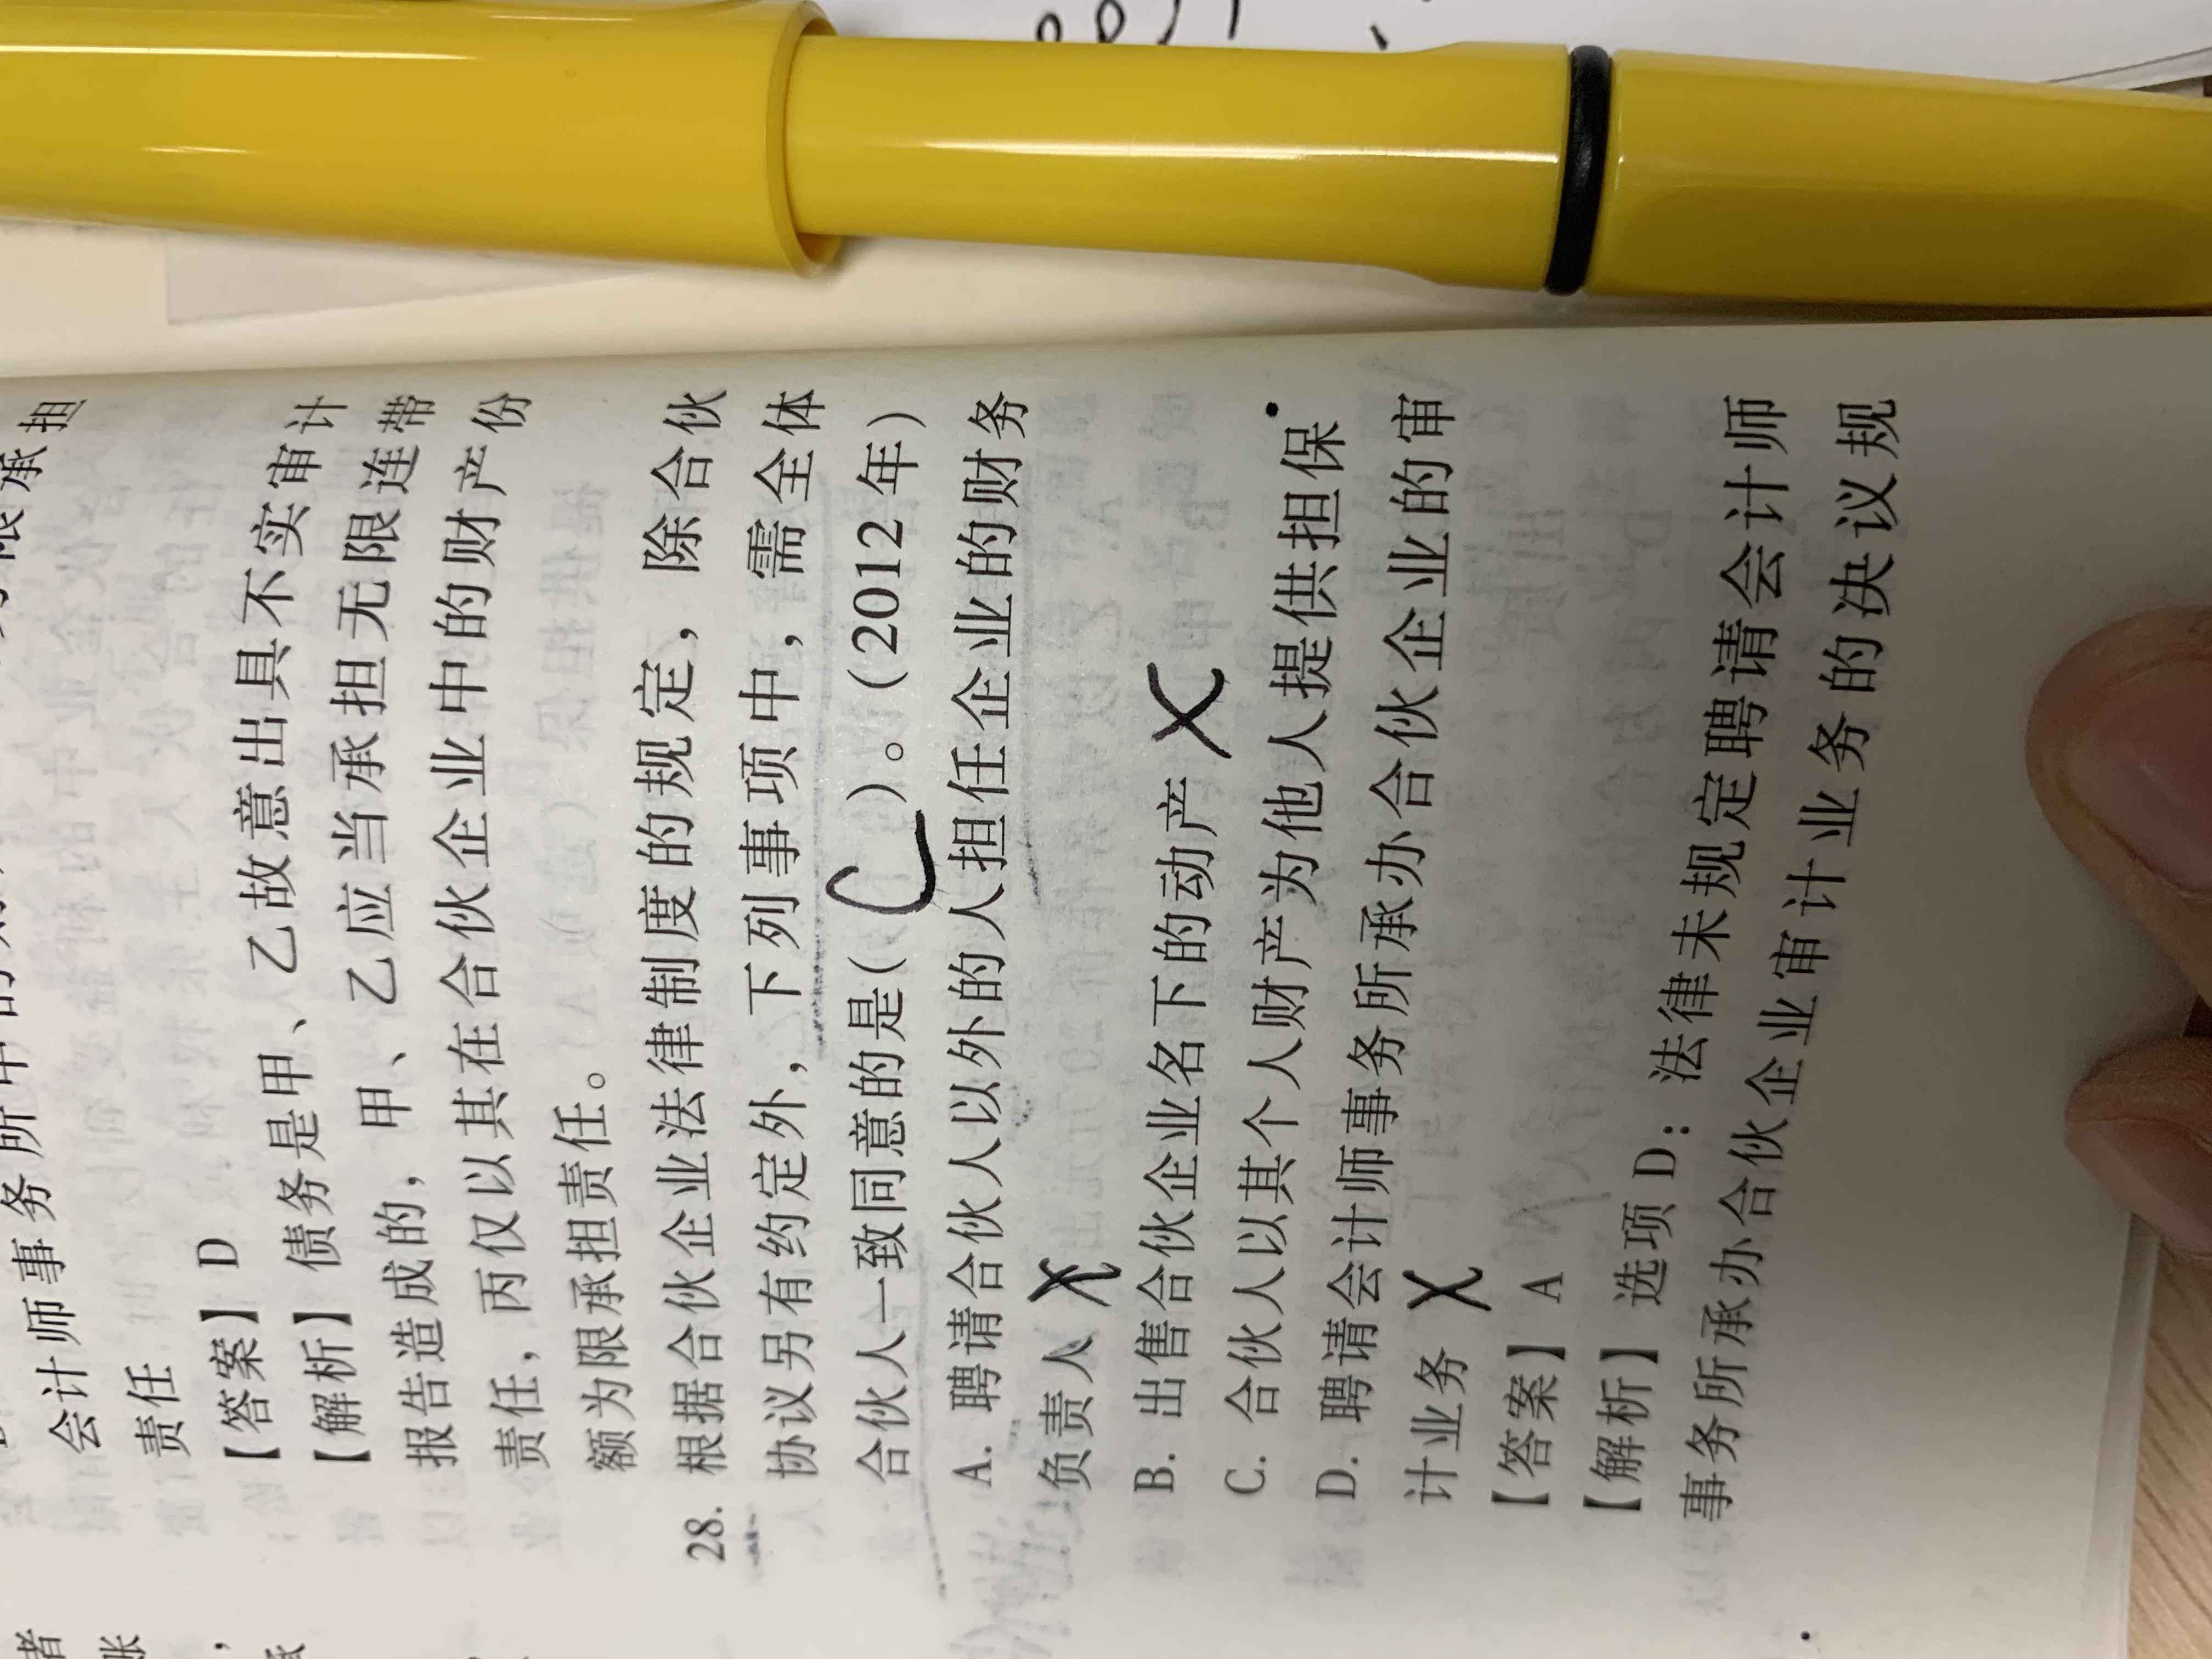 会计师事务所中的财
责任
【答案】D
【解析】债务是甲、乙故意出具不实审计
报告造成的，甲、乙应当承担无限连带
责任，丙仅以其在合伙企业中的财产份
额为限承担责任。
28. 根据合伙企业法律制度的规定，除合伙
协议另有约定外，下列事项中，需全体
合伙人一致同意的是( C )。(2012年)
A. 聘请合伙人以外的人担任企业的财务
负责人 X
B. 出售合伙企业名下的动产 X
C. 合伙人以其个人财产为他人提供担保
D. 聘请会计师事务所承办合伙企业的审
计业务 X
【答案】A
【解析】选项D：法律未规定聘请会计师
事务所承办合伙企业审计业务的决议规